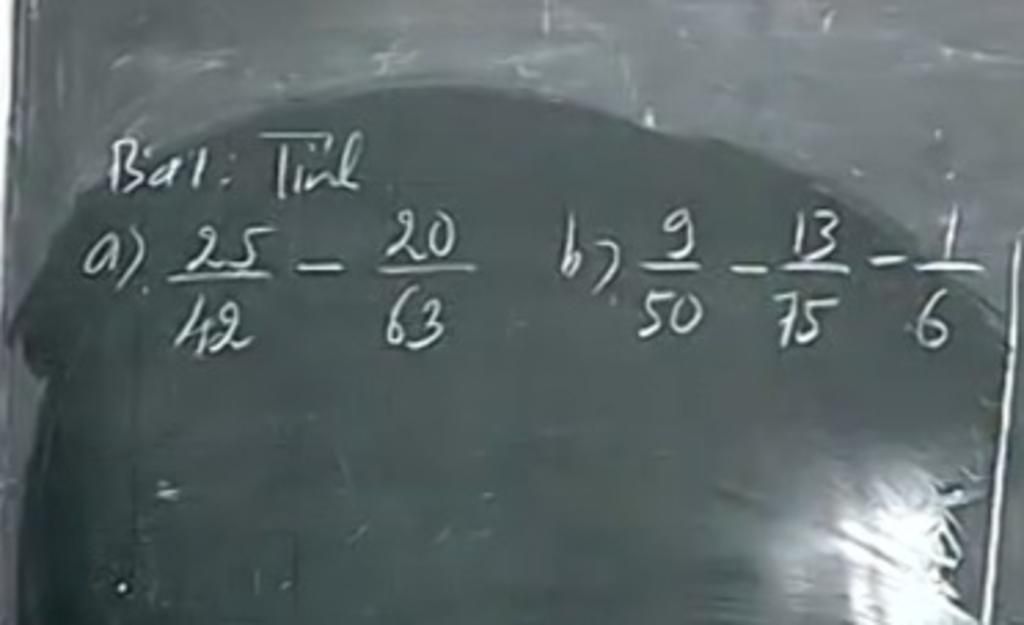 Bài 1: Tính
a) 25/42 - 20/63 b) 9/50 - 13/75 - 1/6